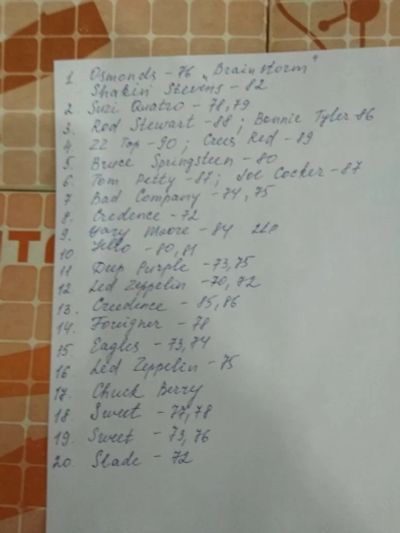 1. Osmonds - 76 „Brainstorm"
Shakin' Stevens - 82
2. Suzi Quatro - 78,79
3. Rod Stewart - 88; Bonnie Tyler 86
4. ZZ Top - 90; Red - 89
5. Bruce Springsteen - 80
6. Tom Petty - 87; Joe Cocker - 87
7. Bad Company - 74,75
8. Credence - 72
9. Gary Moore - 84 2LP
10. Yello - 80,81
11 Deep Purple - 73,75
12 Led Zeppelin - 70,72
13. Creedence - 85,86
14. Foreigner - 78
15. Eagles - 73,74
16 Led Zeppelin - 75
17. Chuck Berry
18. Sweet - 77,78
19. Sweet - 73,76
20. Slade - 72